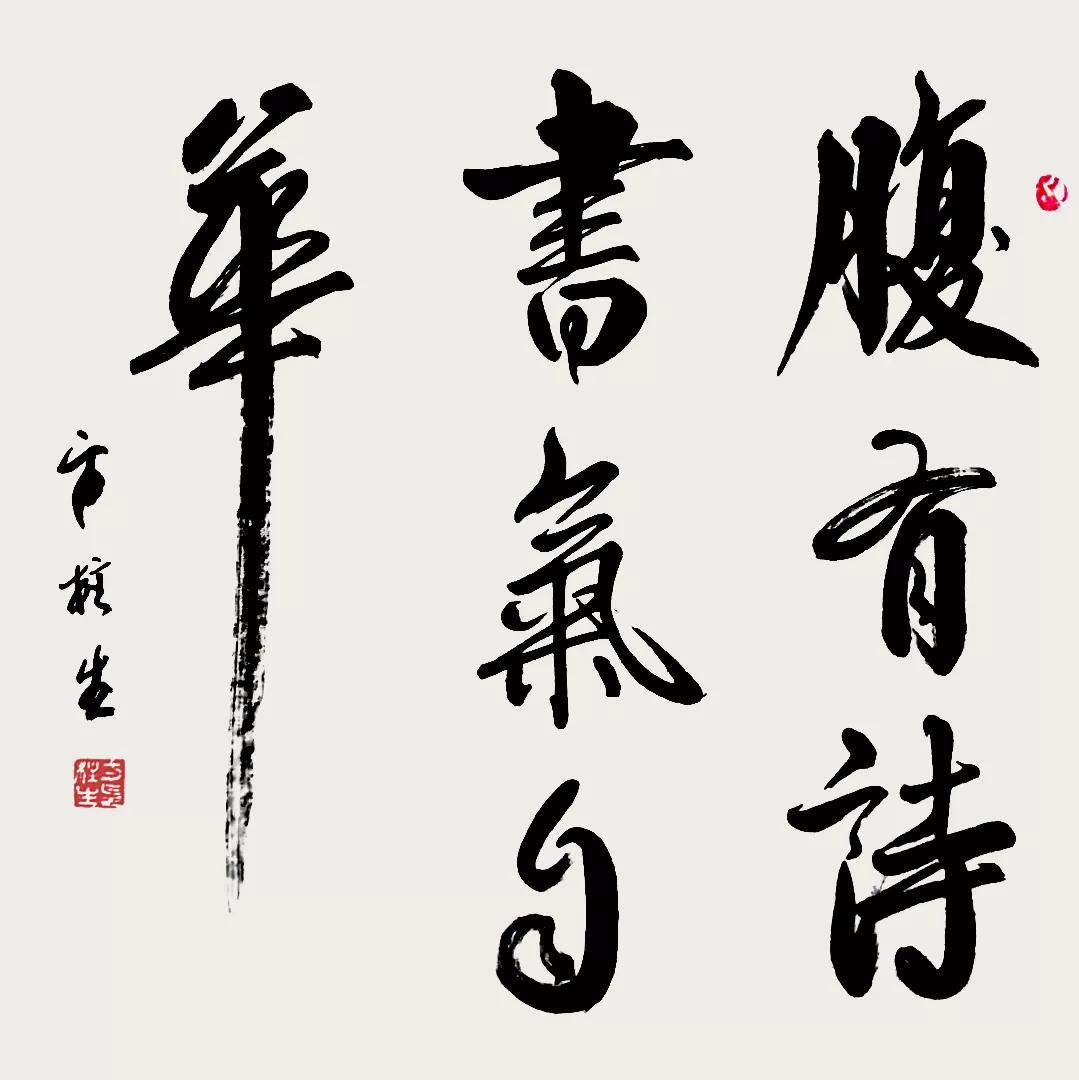 腹有詩
書氣自
華
生